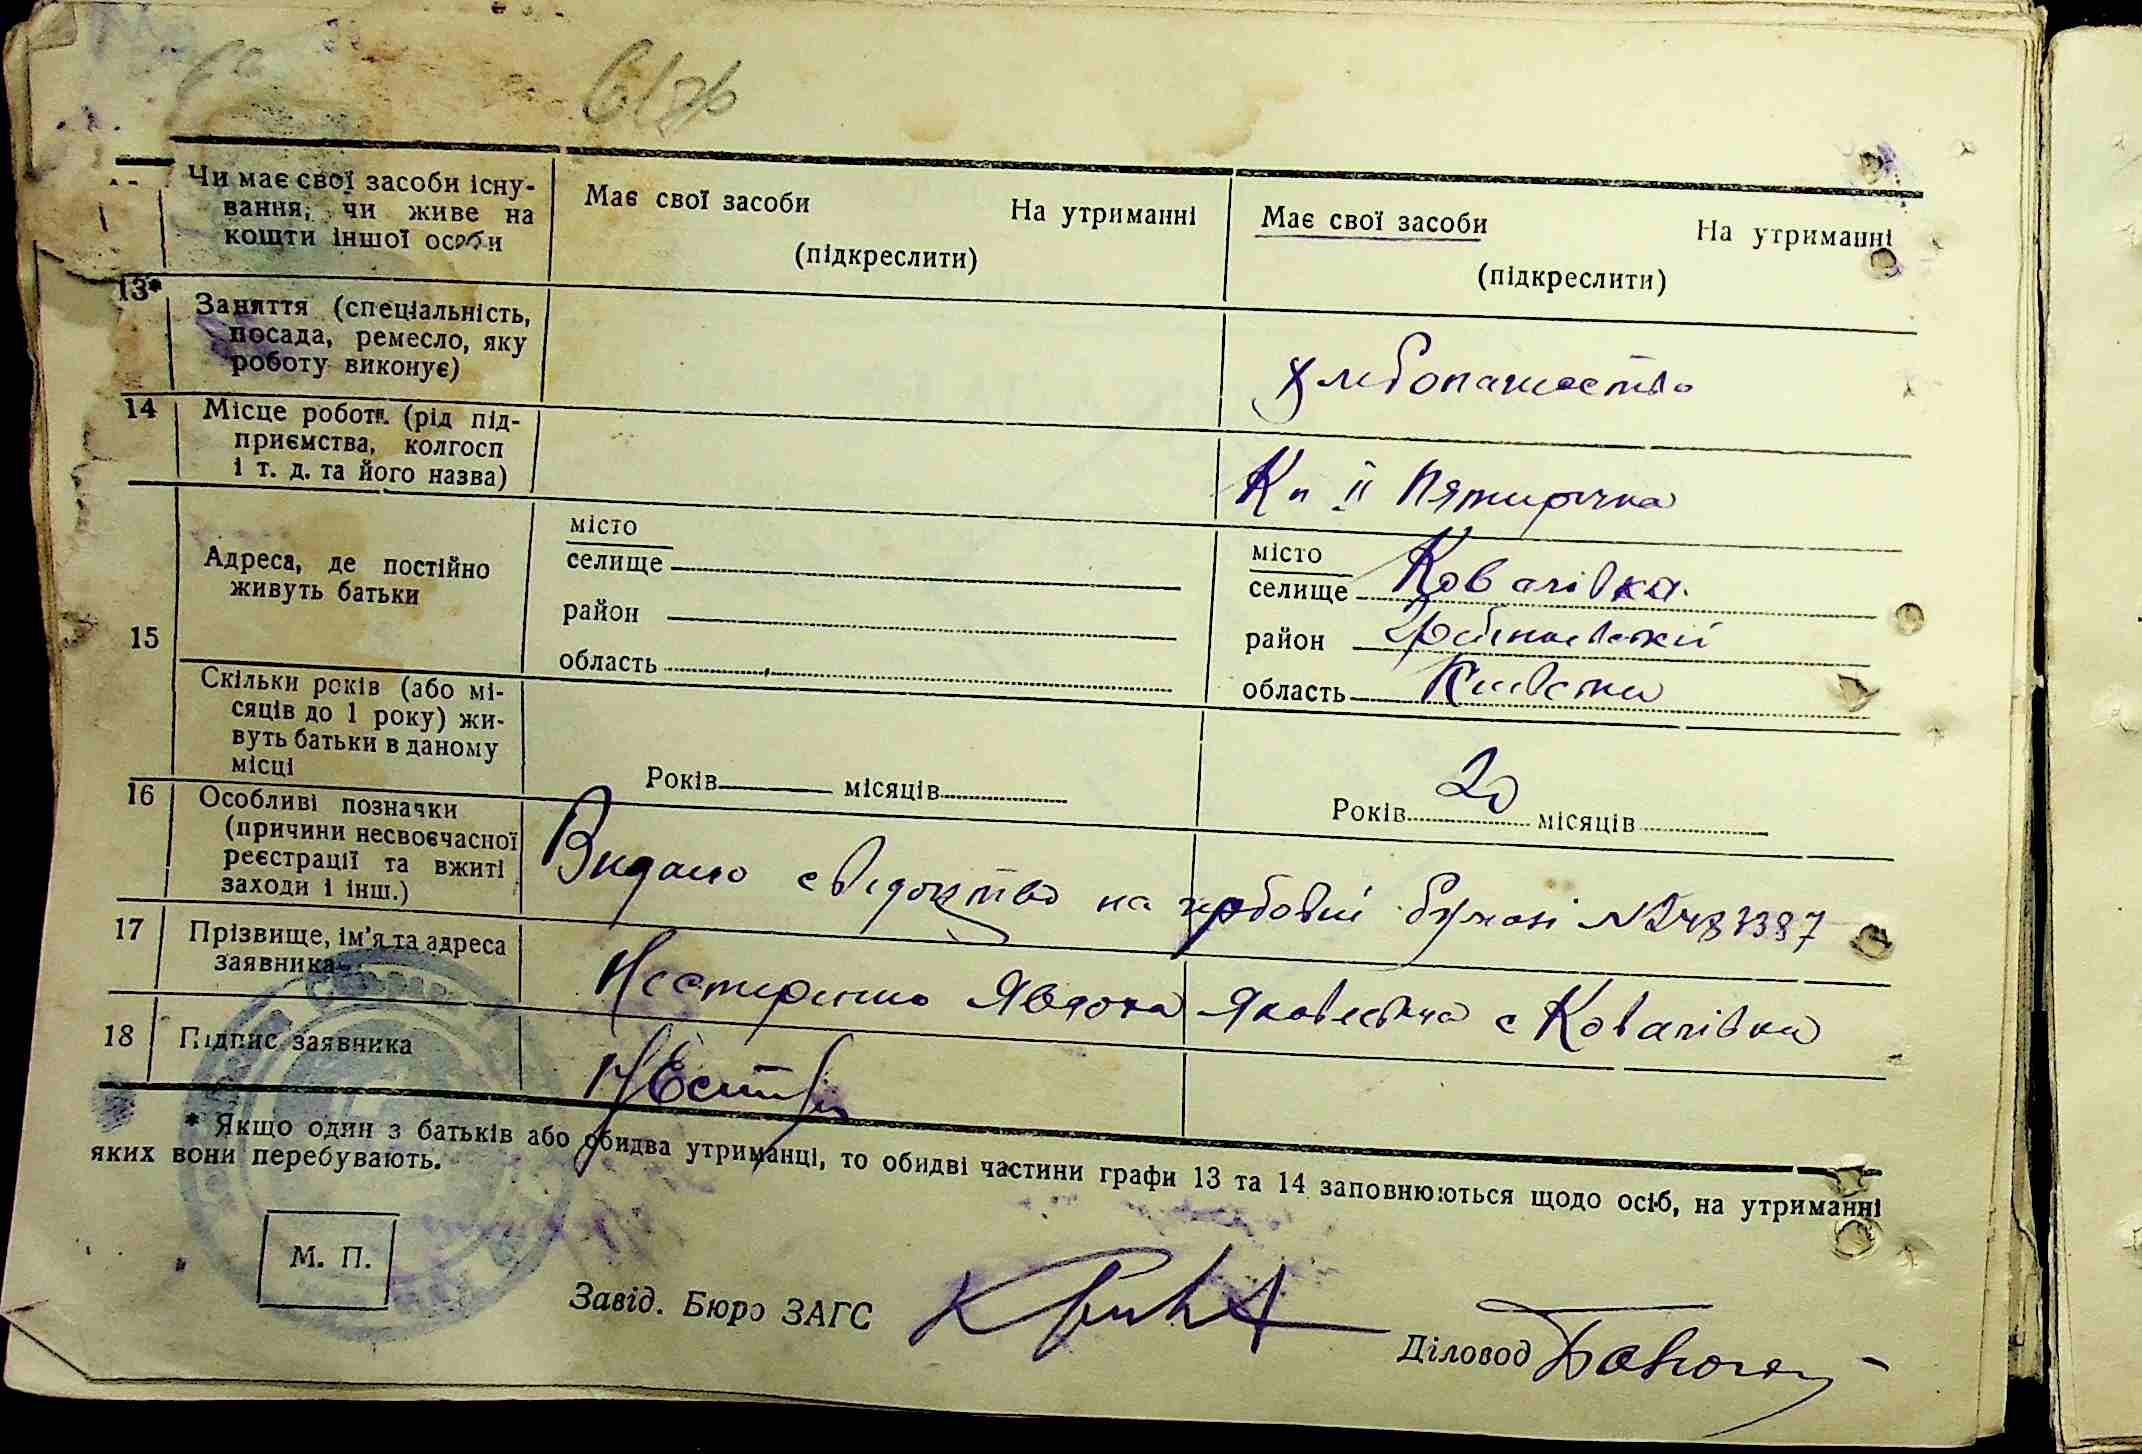 Чи має свої засоби існу-
вання, чи живе на
кошти іншої особи
Має свої засоби На утриманні
(підкреслити)
Має свої засоби На утриманні
(підкреслити)
13*
Заняття (спеціальність,
посада, ремесло, яку
роботу виконує)
хлібопашество
14
Місце роботи (рід під-
приємства, колгосп
і т. д. та його назва)
Кп ІІ Пятирічка
15
Адреса, де постійно
живуть батьки
місто
селище
район
область
місто
селище Ковалівка
район
область Київська
Скільки років (або мі-
сяців до 1 року) жи-
вуть батьки в даному
місці
Років місяців
Років 20 місяців
16
Особливі позначки
(причини несвоєчасної
реєстрації та вжиті
заходи і інш.)
Видано свідоцтво на гербовій бумазі №
17
Прізвище, ім'я та адреса
заявника
Нестиренко Явдоха Яковлевна с Ковалівка
18
Підпис заявника
* Якщо один з батьків або обидва утриманці, то обидві частини графи 13 та 14 заповнюються щодо осіб, на утриманні
яких вони перебувають.
М. П.
Завід. Бюро ЗАГС
Діловод